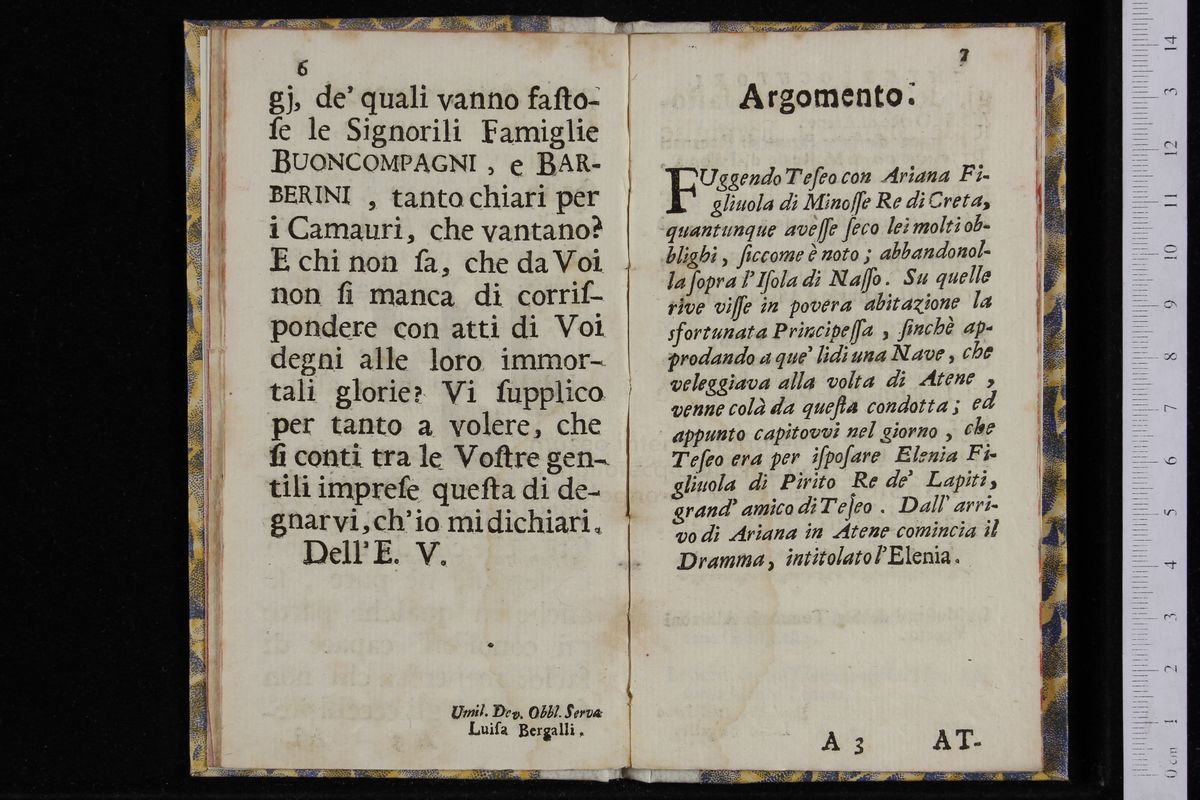 6
gj, de' quali vanno faſto-
ſe le Signorili Famiglie
BUONCOMPAGNI , e BAR-
BERINI , tanto chiari per
i Camauri, che vantano?
E chi non ſa, che da Voi
non ſi manca di corriſ-
pondere con atti di Voi
degni alle loro immor-
tali glorie? Vi ſupplico
per tanto a volere, che
ſi conti tra le Voſtre gen-
tili impreſe queſta di de-
gnarvi, ch'io mi dichiari.
Dell'E. V.
Umil. Dev. Obbl. Serva
Luiſa Bergalli.
7
Argomento.
FUggendo Teſeo con Ariana Fi-
gliuola di Minoſſe Re di Creta,
quantunque aveſſe ſeco lei molti ob-
blighi, ſiccome è noto; abbandonol-
la ſopra l'Iſola di Naſſo. Su quelle
rive viſſe in povera abitazione la
sfortunata Principeſſa , finchè ap-
prodando a que' lidi una Nave, che
veleggiava alla volta di Atene ,
venne colà da queſta condotta; ed
appunto capitovvi nel giorno , che
Teſeo era per iſpoſare Elenia Fi-
gliuola di Pirito Re de' Lapiti,
grand' amico di Teſeo . Dall' arri-
vo di Ariana in Atene comincia il
Dramma, intitolato l'Elenia.
A 3 AT-
0 cm 1 2 3 4 5 6 7 8 9 10 11 12 3 14